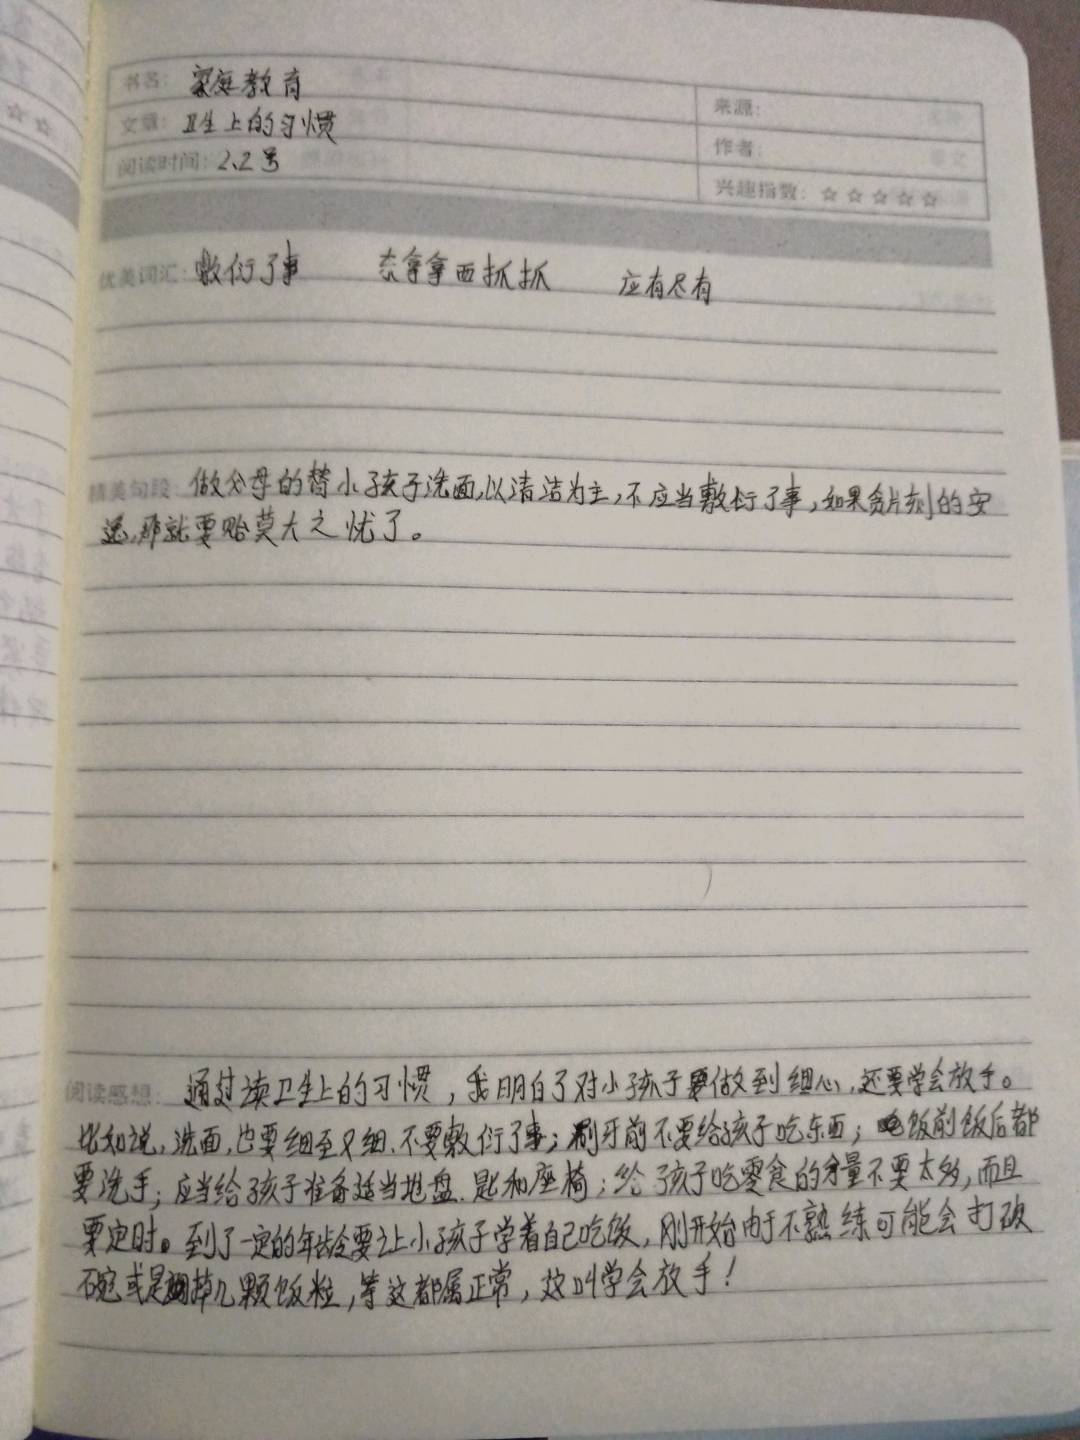 书名：家庭教育
来源：
文章：卫生上的习惯
作者：
阅读时间：2.2号
兴趣指数：☆☆☆☆☆
优美词汇：敷衍了事 东拿拿西抓抓 应有尽有
精美句段：做父母的替小孩子洗面，以清洁为主，不应当敷衍了事，如果贪片刻的安
逸，那就要贻莫大之忧了。
阅读感想：通过读卫生上的习惯，我明白了对小孩子要做到细心，还要学会放手。
比如说，洗面，也要细至又细、不要敷衍了事；刷牙前不要给孩子吃东西；饭前饭后都
要洗手；应当给孩子准备适当地盘、匙和座椅；给孩子吃零食的分量不要太多，而且
要定时。到了一定的年龄要让小孩子学着自己吃饭，刚开始由于不熟练可能会打破
碗或是掉几颗饭粒，等这都属正常，这叫学会放手！